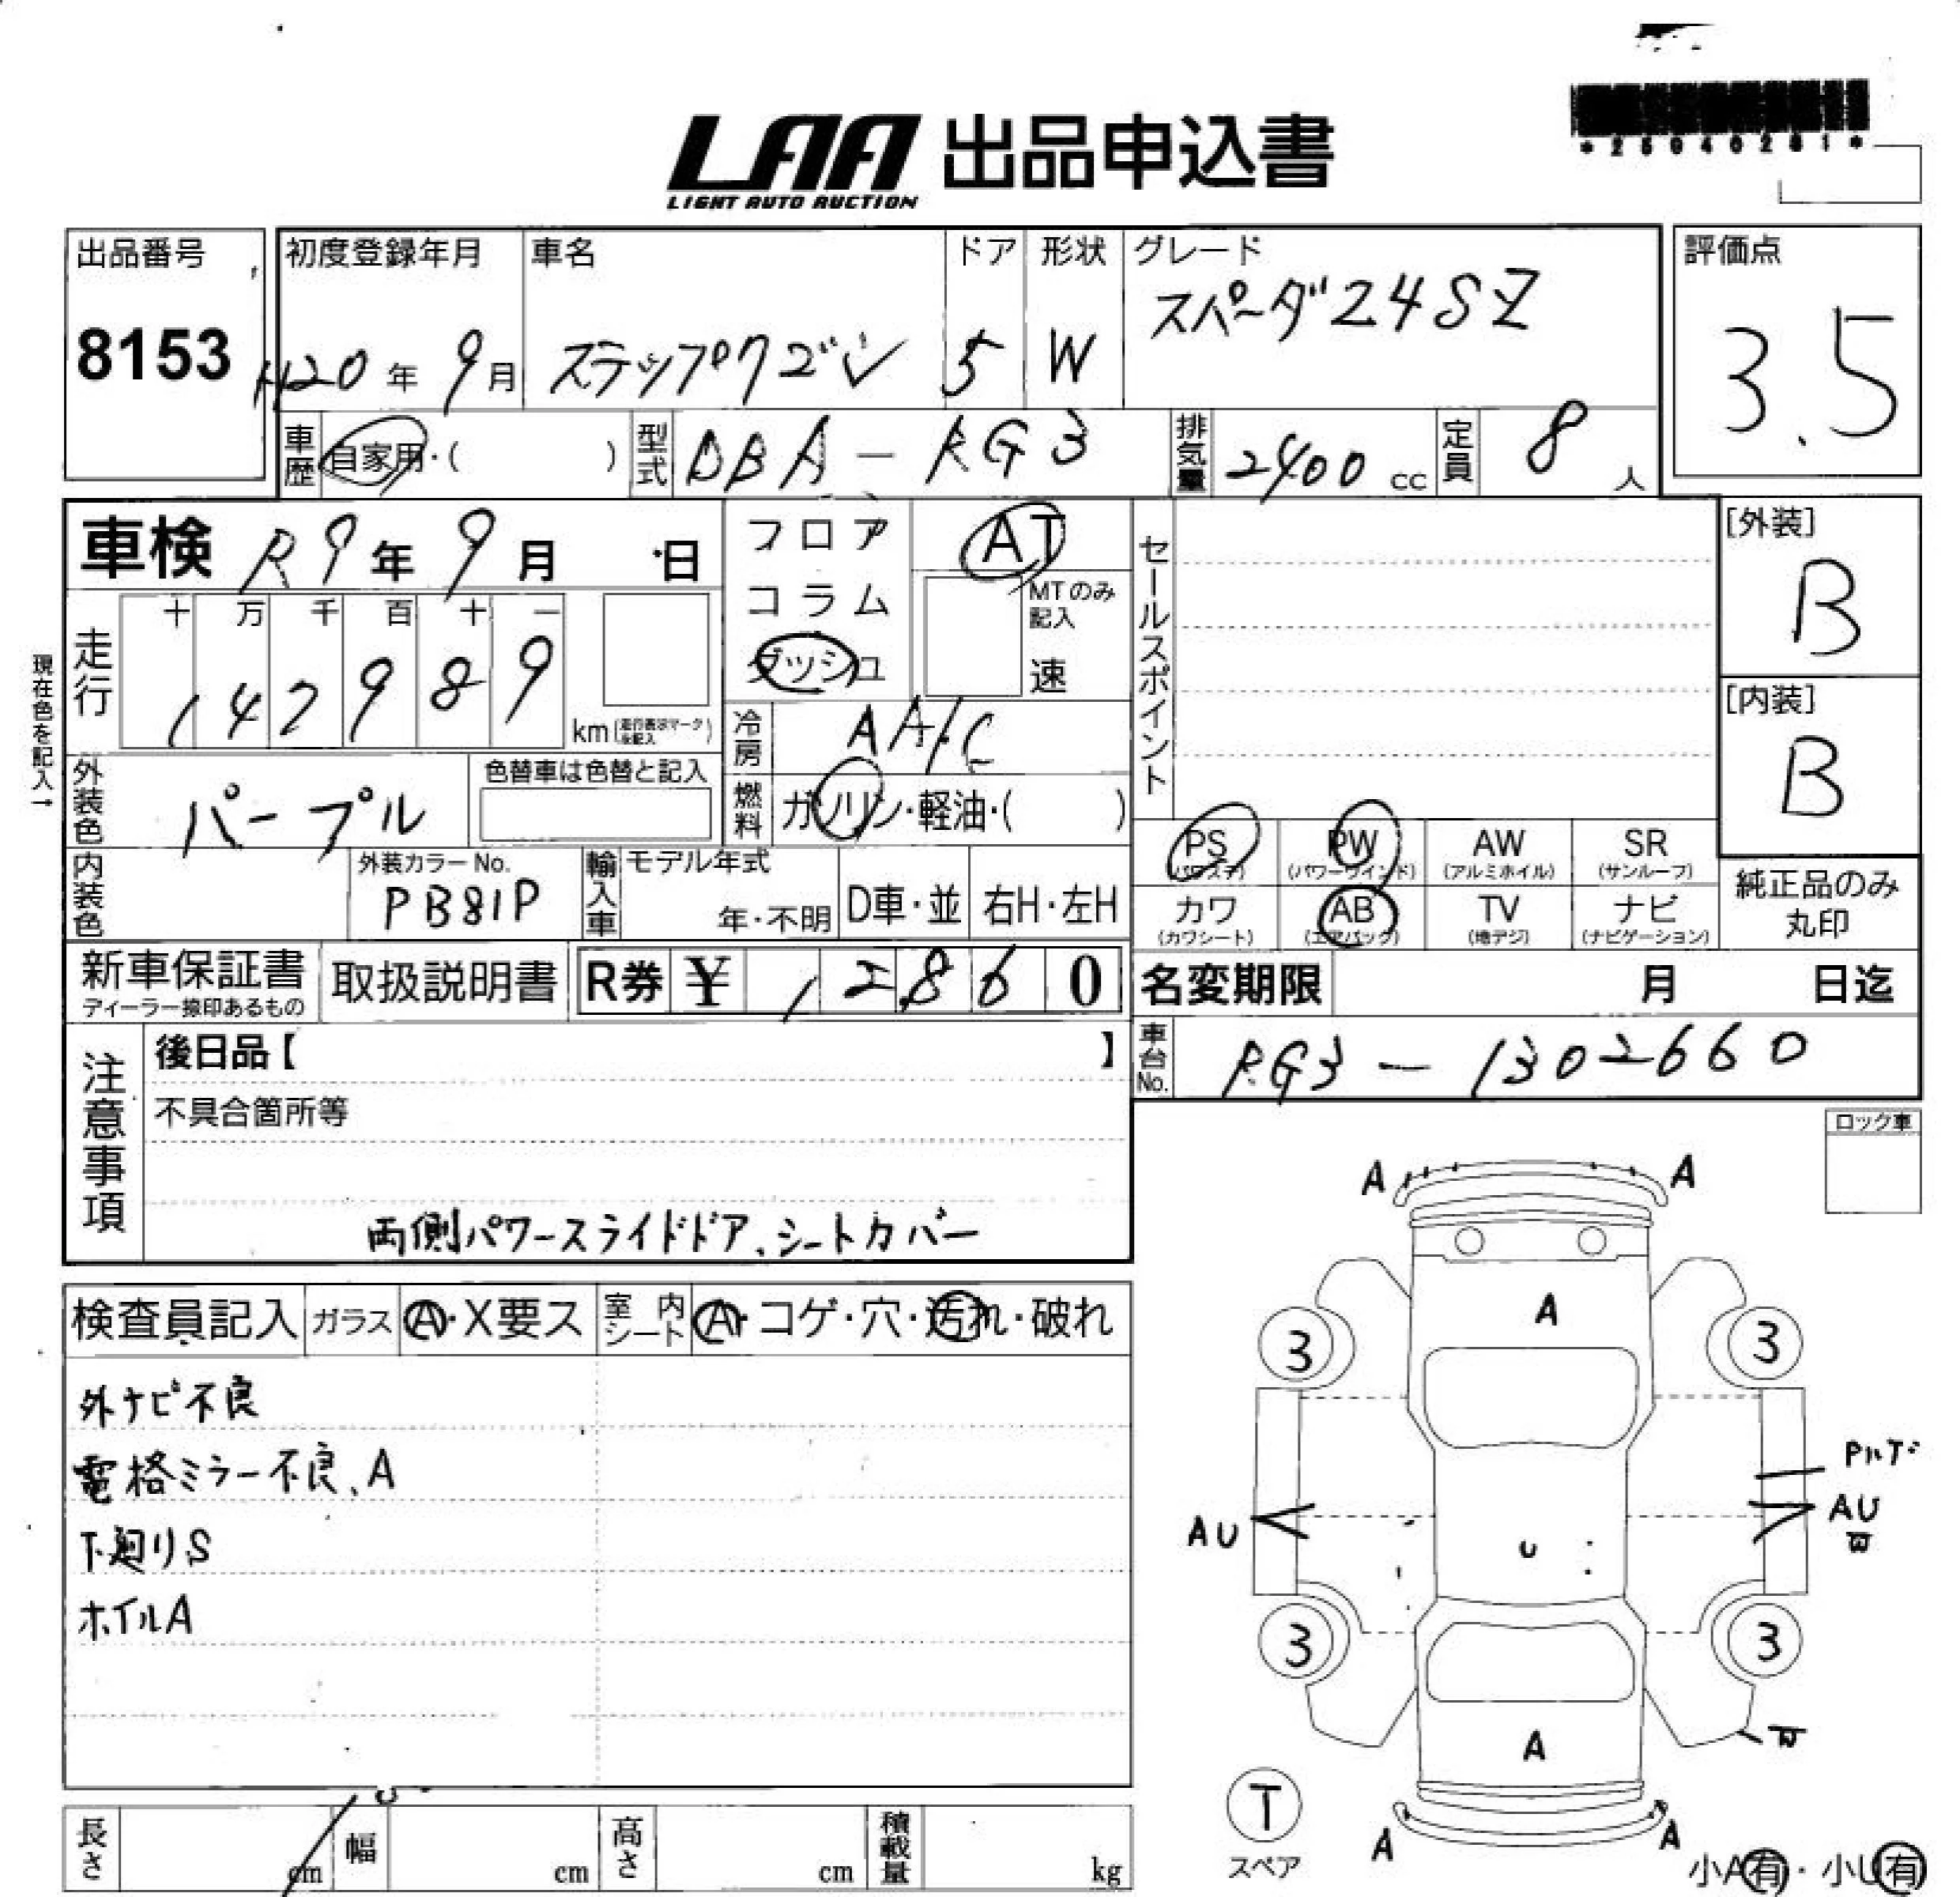 *25040281*
LAA 出品申込書
LIGHT AUTO AUCTION
出品番号 初度登録年月 車名 ドア 形状 グレード 評価点
8153 H20年 9月 ステップワゴン 5 W スパーダ24SZ 3.5
車歴 自家用・( ) 型式 DBA-RG3 排気量 2400 cc 定員 8 人
車検 R9年 9月 日 フロア AT セールスポイント [外装]
コラム MTのみ記入 B
ダッシュ 速
現在色を記入→
走行 十 万 千 百 十 一
142989 km (走行表示マーク後記入) [内装]
冷房 AA/C B
外装色 パープル 色替車は色替と記入 燃料 ガソリン・軽油・( )
PS (パワステ) PW (パワーウインド) AW (アルミホイル) SR (サンルーフ)
内装色 外装カラーNo. PB81P 輸入車 モデル年式 年・不明 D車・並 右H・左H
カワ (カワシート) AB (エアバッグ) TV (地デジ) ナビ (ナビゲーション) 純正品のみ丸印
新車保証書 ディーラー捺印あるもの 取扱説明書 R券 ¥ 12,860 名変期限 月 日迄
車台No. RG3-1302660
注意事項 後日品【 】
不具合箇所等
両側パワースライドドア、シートカバー
ロック車
検査員記入 ガラス A・X要ス 室内シート A・コゲ・穴・汚れ・破れ
外ナビ不良
電格ミラー不良、A
下廻りS
ホイルA
A A
A
3 3
AU U AU
3 3
A
T
スペア
A A
小A有・小U有
長さ cm 幅 cm 高さ cm 積載量 kg